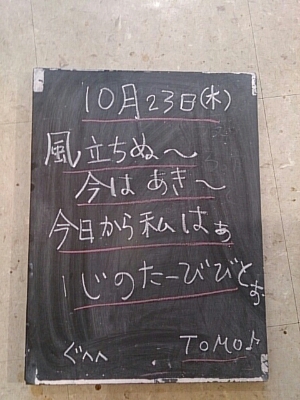 10月23日(木)
風立ちぬ～
今は あき～
今日から私はぁ
いじのたーびびとぉ
ぐへへ TOMO♪